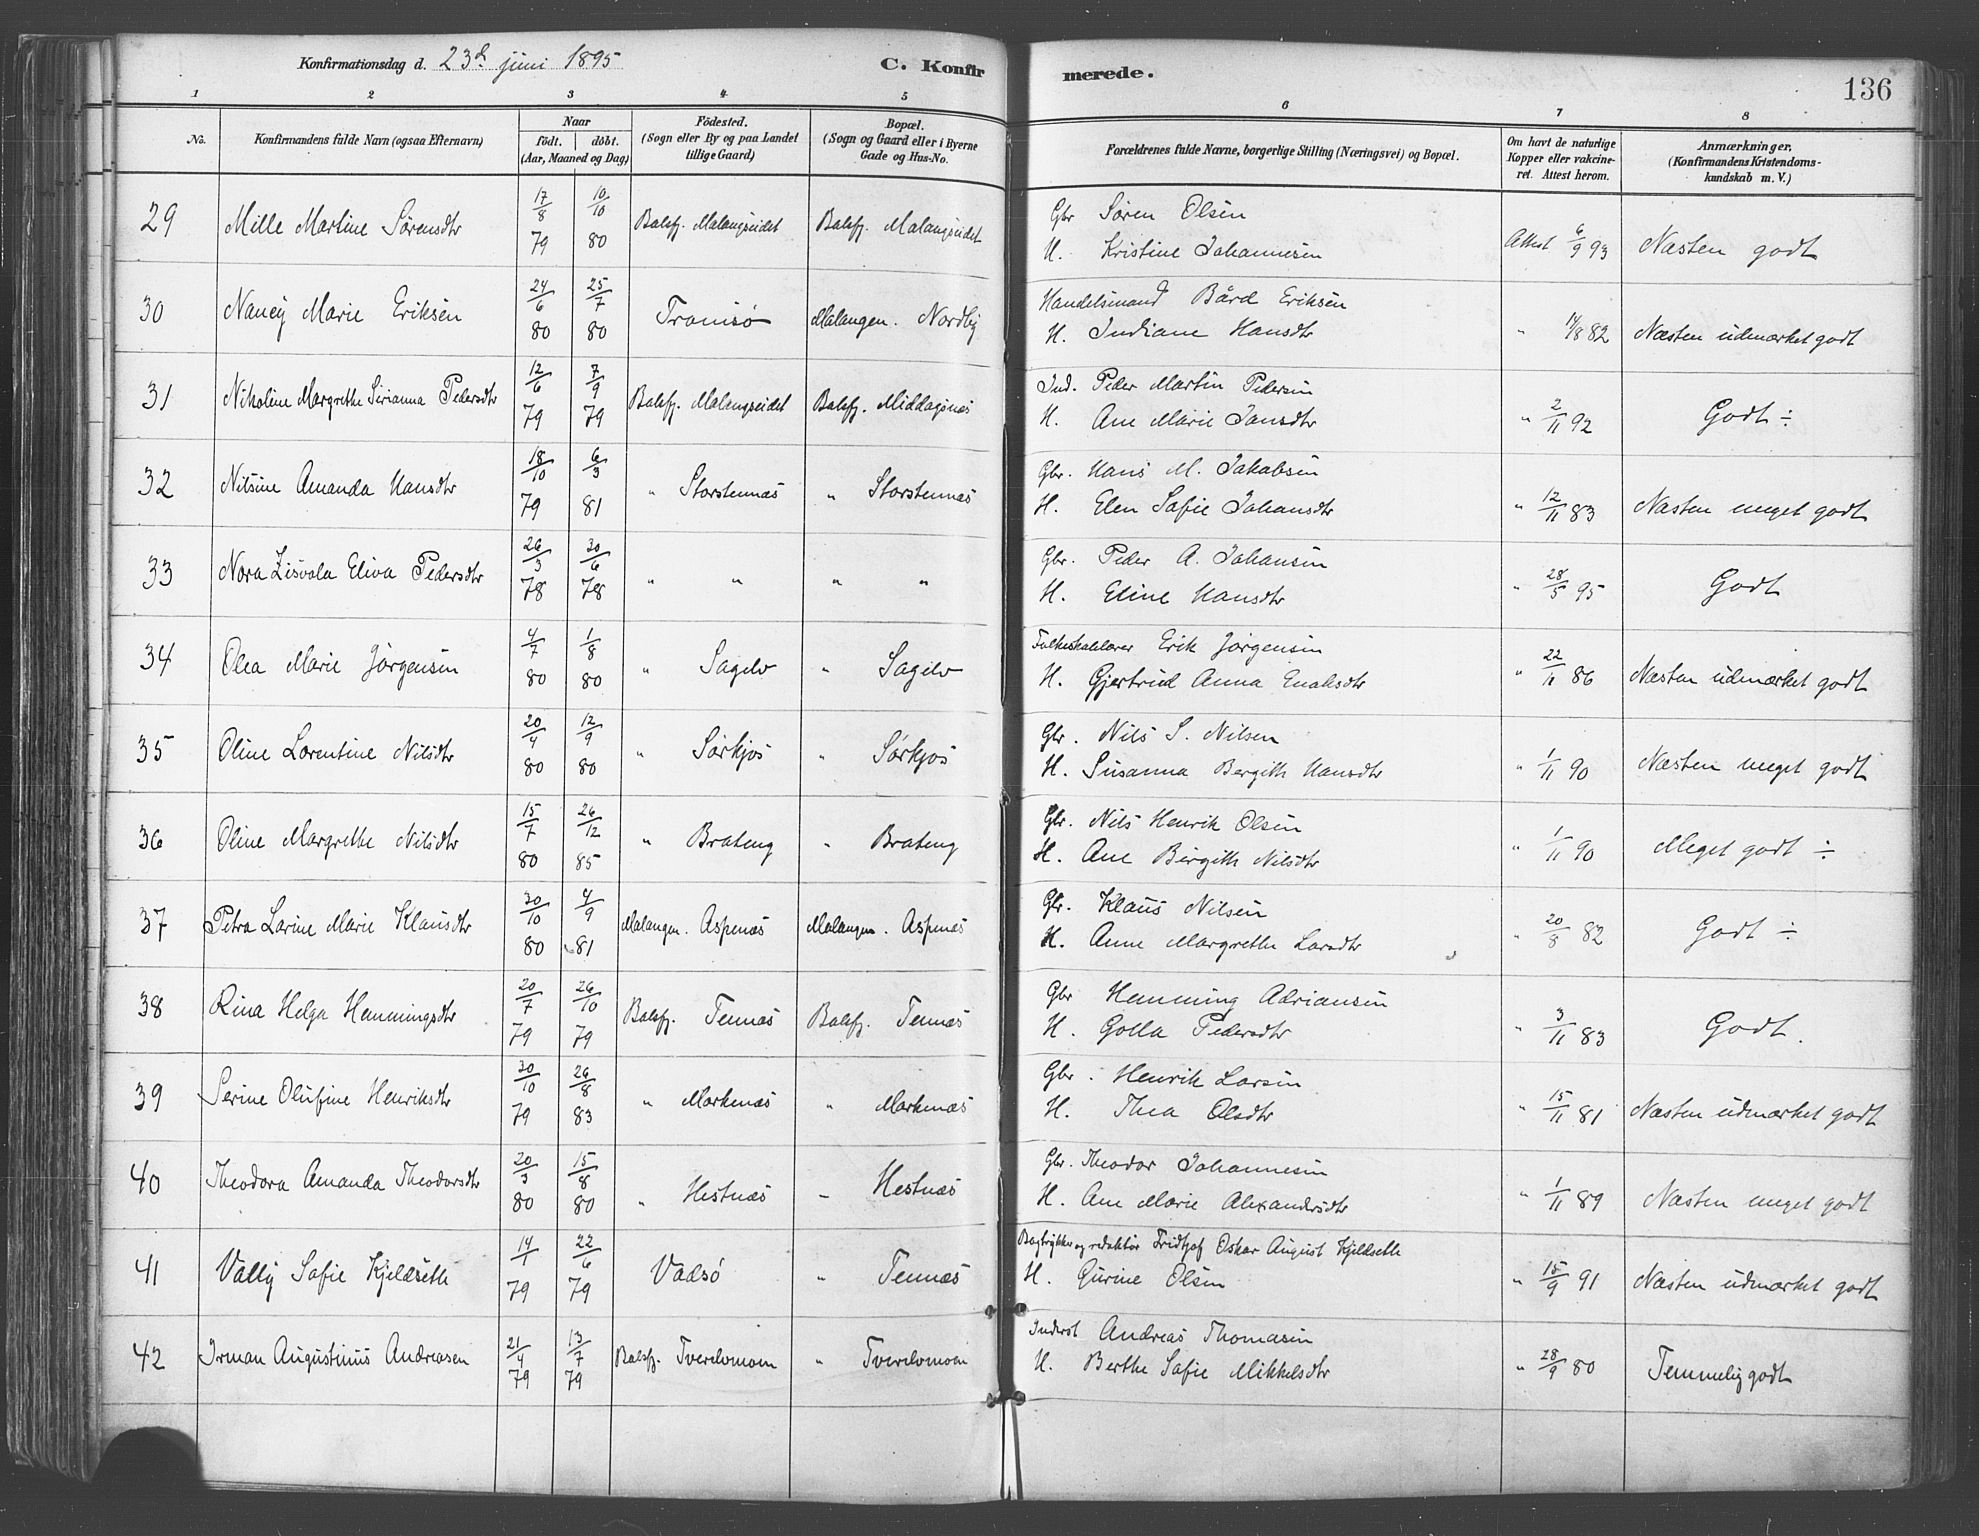 Konfirmationsdag d. 23d juni 1895
C. Konfirmerede.
136
1 2 3 4 5 6 7 8
No. Konfirmandens fulde Navn (ogsaa Efternavn) Naar født. døbt. (Aar, Maaned og Dag) Födested. (Sogn eller By og paa Landet tillige Gaard) Bopæl. (Sogn og Gaard eller i Byerne Gade og Hus-No. Forældrenes fulde Navne, borgerlige Stilling (Næringsvei) og Bopæl. Om havt de naturlige Kopper eller vakcineret. Attest herom. Anmærkninger. (Konfirmandens Kristendomskundskab m. V.)
29 Mille Martine Sørensdtr 17/8 79 10/10 80 Balsfj. Malangseidet Balsfj. Malangseidet Gbr Søren Olsen
H. Kristine Johannesen Attest 6/9 93 Næsten godt
30 Nancy Marie Eriksen 24/6 80 25/7 80 Tromsø Malangen. Nordby Handelsmand Bård Eriksen
H. Indiane Hansdtr " 1/8 82 Næsten udmærket godt
31 Nikoline Margrethe Sirianna Pedersdtr 12/6 79 7/9 79 Balsfj. Malangseidet Balsfj. Middagsnæs Ind. Peder Martin Pedersen
H. Ane Marie Jansdtr " 2/11 92 Godt ÷
32 Nilsine Amanda Hansdtr 18/10 79 6/3 81 " Storstennæs " Storstennæs Gbr. Hans M. Jakobsen
H. Elen Sofie Johansdtr " 12/11 83 Næsten meget godt
33 Nora Zisvola Eliva Pedersdtr 26/3 78 30/6 78 " " " " Gbr. Peder A. Johansen
H. Eline Hansdtr " 28/5 95 Godt
34 Olea Marie Jørgensen 4/7 80 1/8 80 " Sagelv " Sagelv Folkeskolelærer Erik Jørgensen
H. Gjertrud Anna Enoksdtr " 22/11 86 Næsten udmærket godt
35 Oline Lorentine Nilsdtr 20/4 80 12/9 80 " Sørkjos " Sørkjos Gbr. Nils S. Nilsen
H. Susanna Bergith Hansdtr " 1/11 90 Næsten meget godt
36 Oline Margrethe Nilsdtr 15/7 80 26/12 85 " Brateng " Brateng Gbr. Nils Henrik Olsen
H. Ane Birgith Nilsdtr " 1/11 90 Meget godt ÷
37 Petra Larine Marie Klausdtr 30/10 80 4/9 81 Malangen. Aspenæs Malangen. Aspenæs Gbr. Klaus Nilsen
H. Anne Margrethe Larsdtr " 20/8 82 Godt ÷
38 Rina Helga Hemmingsdtr 20/7 79 26/10 79 Balsfj. Tennæs Balsfj. Tennæs Gbr Hemming Adriansen
H. Golla Pedersdtr " 3/11 83 Godt.
39 Serine Olufine Henriksdtr 30/10 79 26/8 83 " Markenæs " Markenæs Gbr. Henrik Larsen
H. Thea Olsdtr " 15/11 81 Næsten udmærket godt
40 Theodora Amanda Theodorsdtr 20/3 80 15/8 80 " Hestnæs " Hestnæs Gbr. Theodor Johannesen
H. Ane Marie Alexandersdtr " 1/11 89 Næsten meget godt
41 Vally Sofie Kjeldseth 14/1 79 22/6 79 Vadsø " Tennæs Bogtrykker og redaktør Fridtjof Oskar August Kjeldseth
H. Gurine Olsen " 15/9 91 Næsten udmærket godt
42 Irman Augustinus Andreasen 21/4 79 13/7 79 Balsfj. Tverelvmoen " Tverelvmoen Inderst Andreas Thomasen
H. Berthe Sofie Mikkelsdtr " 28/9 80 Temmelig godt